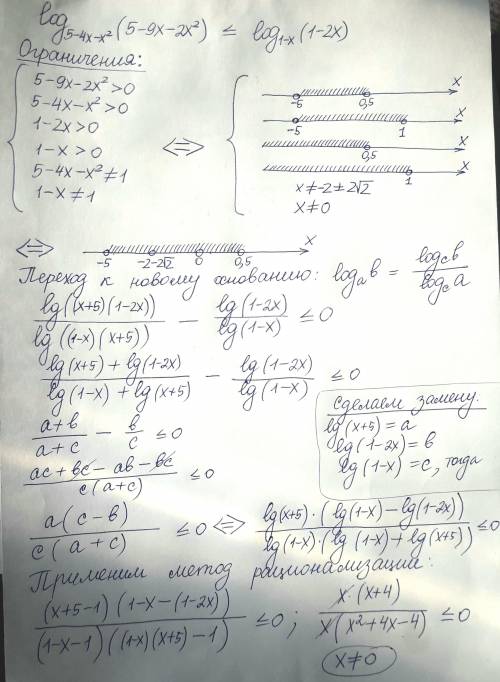 log_{5-4x-x²}(5-9x-2x²) ≤ log_{1-x}(1-2x)
Ограничения:
{ 5-9x-2x²>0
5-4x-x²>0
1-2x>0
1-x>0
5-4x-x²≠1
1-x≠1
⟺ {
-5 0,5 x
-5 1 x
0,5 x
1 x
x≠-2±2√2
x≠0
⟺ -5 -2-2√2 0 0,5 x
Переход к новому основанию: log_a b = log_c b / log_c a
lg((x+5)(1-2x)) / lg((1-x)(x+5)) - lg(1-2x) / lg(1-x) ≤ 0
(lg(x+5)+lg(1-2x)) / (lg(1-x)+lg(x+5)) - lg(1-2x) / lg(1-x) ≤ 0
(a+b)/(a+c) - b/c ≤ 0
сделаем замену:
lg(x+5)=a
lg(1-2x)=b
lg(1-x)=c, тогда
(ac+bc-ab-bc) / (c(a+c)) ≤ 0
a(c-b) / (c(a+c)) ≤ 0 ⟺ lg(x+5)·(lg(1-x)-lg(1-2x)) / (lg(1-x)·(lg(1-x)+lg(x+5))) ≤ 0
Применим метод рационализации:
(x+5-1)(1-x-(1-2x)) / ((1-x-1)((1-x)(x+5)-1)) ≤ 0; x·(x+4) / (x(x²+4x-4)) ≤ 0
x≠0